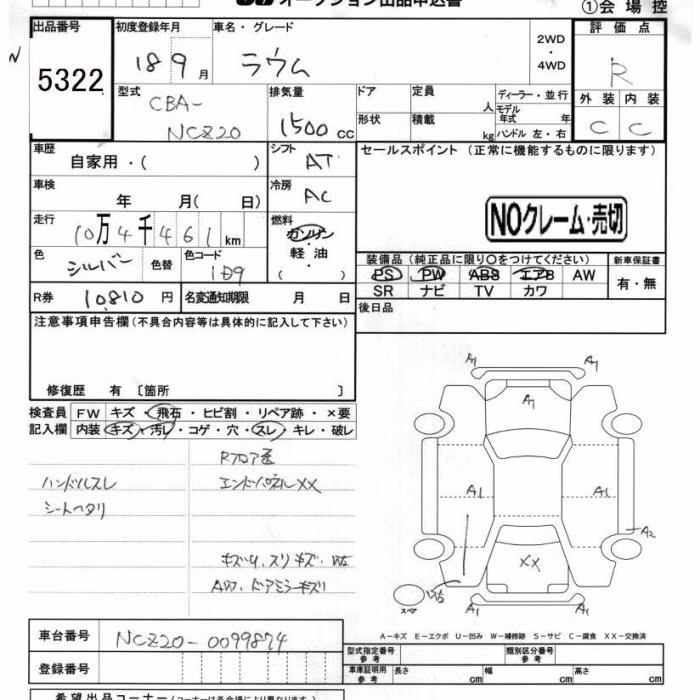 オークション出品申込書
①会場控
出品番号 初度登録年月 車名・グレード 2WD・4WD 評価点
5322 18 9月 ラウム R
型式 排気量 ドア 定員 人 ディーラー・並行 外装 内装
CBA-NCZ20 1500cc 形状 積載 kg モデル年式 年 ハンドル 左・右 C C
車歴 シフト セールスポイント（正常に機能するものに限ります）
自家用・（ ） AT
車検 冷房
年 月（ 日） AC
NOクレーム・売切
走行 燃料
10万4千461km ガソリン・軽油・（ ）
色 色替 色コード 装備品（純正品に限り○をつけてください） 新車保証書
シルバー 1D9 PS PW ABS エアB AW 有・無
SR ナビ TV カワ
R券 10810円 名変通知期限 月 日 後日品
注意事項申告欄（不具合内容等は具体的に記入して下さい）
修復歴 有〔箇所 〕
検査員 FW キズ・飛石・ヒビ割・リペア跡・×要
記入欄 内装 キズ・汚レ・コゲ・穴・スレ・キレ・破レ
Rフロア歪
ハンドルスレ エンドパネルXX
シートヘタリ
AW、ドアミラーキズ
A1 A1
A1
A1 A1
A2
XX
スペア
A1 A1
A-キズ E-エクボ U-凹み W-補修跡 S-サビ C-腐食 XX-交換済
車台番号 NCZ20-0099874
型式指定番号 参考 類別区分番号 参考
登録番号 車庫証明用 参考 長さ cm 幅 cm 高さ cm
希望出品コーナー